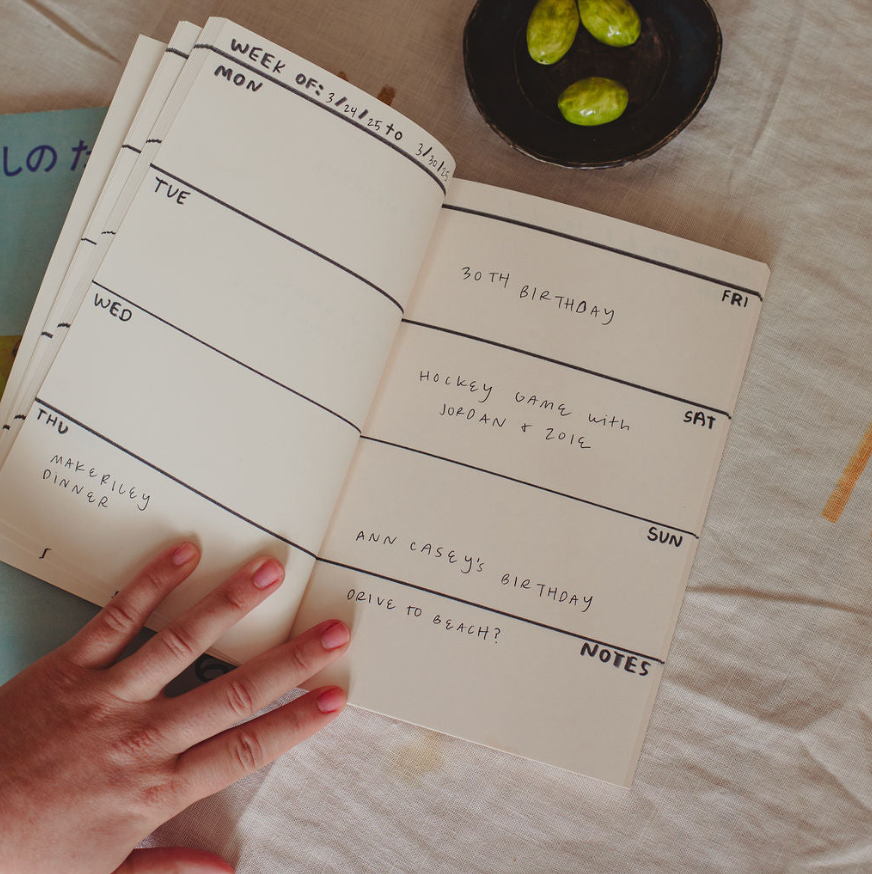 しのた
WEEK OF: 3/24/25 to 3/30/25
MON
TUE
WED
THU
MAKERILEY
DINNER
FRI
30TH BIRTHDAY
SAT
HOCKEY GAME with
JORDAN & ZOIE
SUN
ANN CASEY'S BIRTHDAY
NOTES
DRIVE TO BEACH?